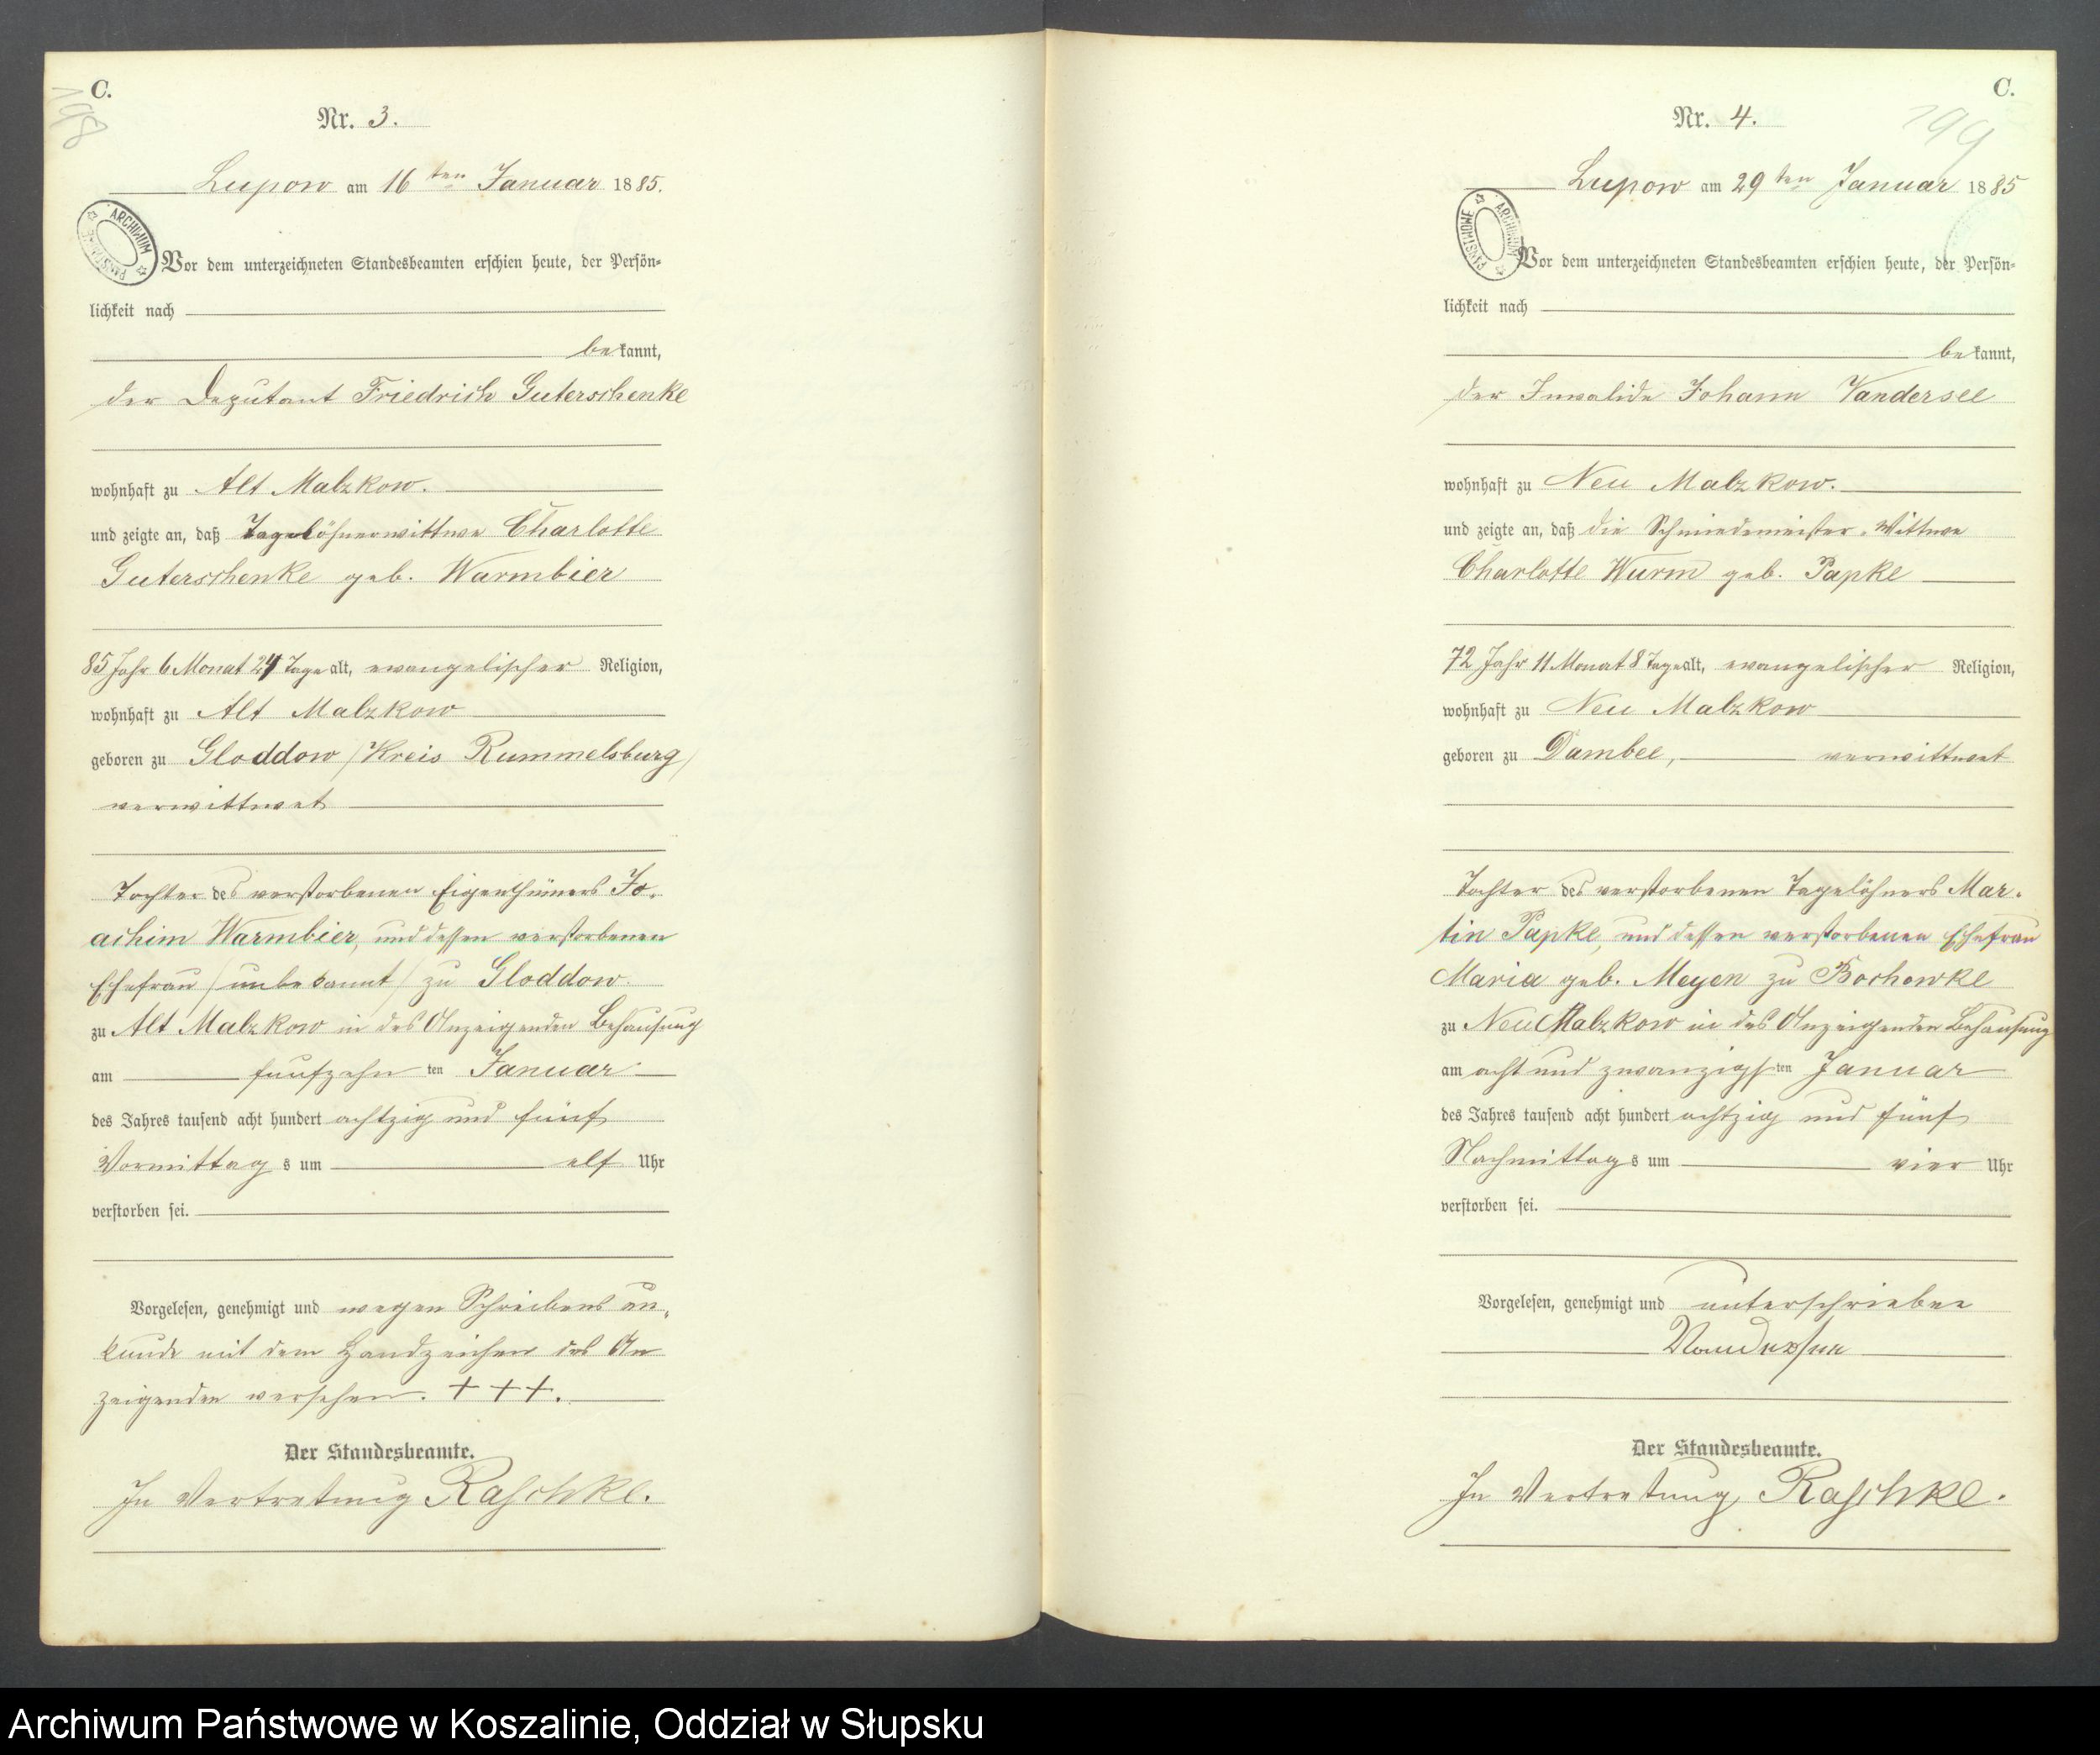 C.
198
Nr. 3.
Lupow am 16 ten Januar 1885.
ARCHIWUM PAŃSTWOWE
Vor dem unterzeichneten Standesbeamten erschien heute, der Persön-
lichkeit nach
bekannt,
der Deputant Friedrich Guterschenke
wohnhaft zu Alt Malzkow.
und zeigte an, daß Tagelöhnerwittwe Charlotte
Guterschenke geb. Warmbier
85 Jahr 6 Monat 24 Tage alt, evangelischer Religion,
wohnhaft zu Alt Malzkow
geboren zu Gloddow /Kreis Rummelsburg/
verwittwet
Tochter des verstorbenen Eigenthümers Jo-
achim Warmbier, und dessen verstorbenen
Ehefrau /unbekannt/ zu Gloddow.
zu Alt Malzkow in des Anzeigenden Behausung
am funfzehn ten Januar
des Jahres tausend acht hundert achtzig und fünf
Vormittags um elf Uhr
verstorben sei.
Vorgelesen, genehmigt und wegen Schreibens un-
kunde mit dem Handzeichen des An
zeigenden versehen. +++.
Der Standesbeamte.
In Vertretung Raschke.
C.
199
Nr. 4.
Lupow am 29 ten Januar 1885
ARCHIWUM PAŃSTWOWE
Vor dem unterzeichneten Standesbeamten erschien heute, der Persön-
lichkeit nach
bekannt,
der Invalide Johann Vandersee
wohnhaft zu Neu Malzkow.
und zeigte an, daß die Schmiedemeister-Wittwe
Charlotte Wurm geb. Papke
72 Jahr 11 Monat 8 Tage alt, evangelischer Religion,
wohnhaft zu Neu Malzkow
geboren zu Dambee, verwittwet
Tochter des verstorbenen Tagelöhners Mar-
tin Papke, und dessen verstorbenen Ehefrau
Maria geb. Meyen zu Bochowke
zu Neu Malzkow in des Anzeigenden Behausung
am acht und zwanzigsten Januar
des Jahres tausend acht hundert achtzig und fünf
Nachmittags um vier Uhr
verstorben sei.
Vorgelesen, genehmigt und unterschrieben
Vandersee
Der Standesbeamte.
In Vertretung Raschke.
Archiwum Państwowe w Koszalinie, Oddział w Słupsku